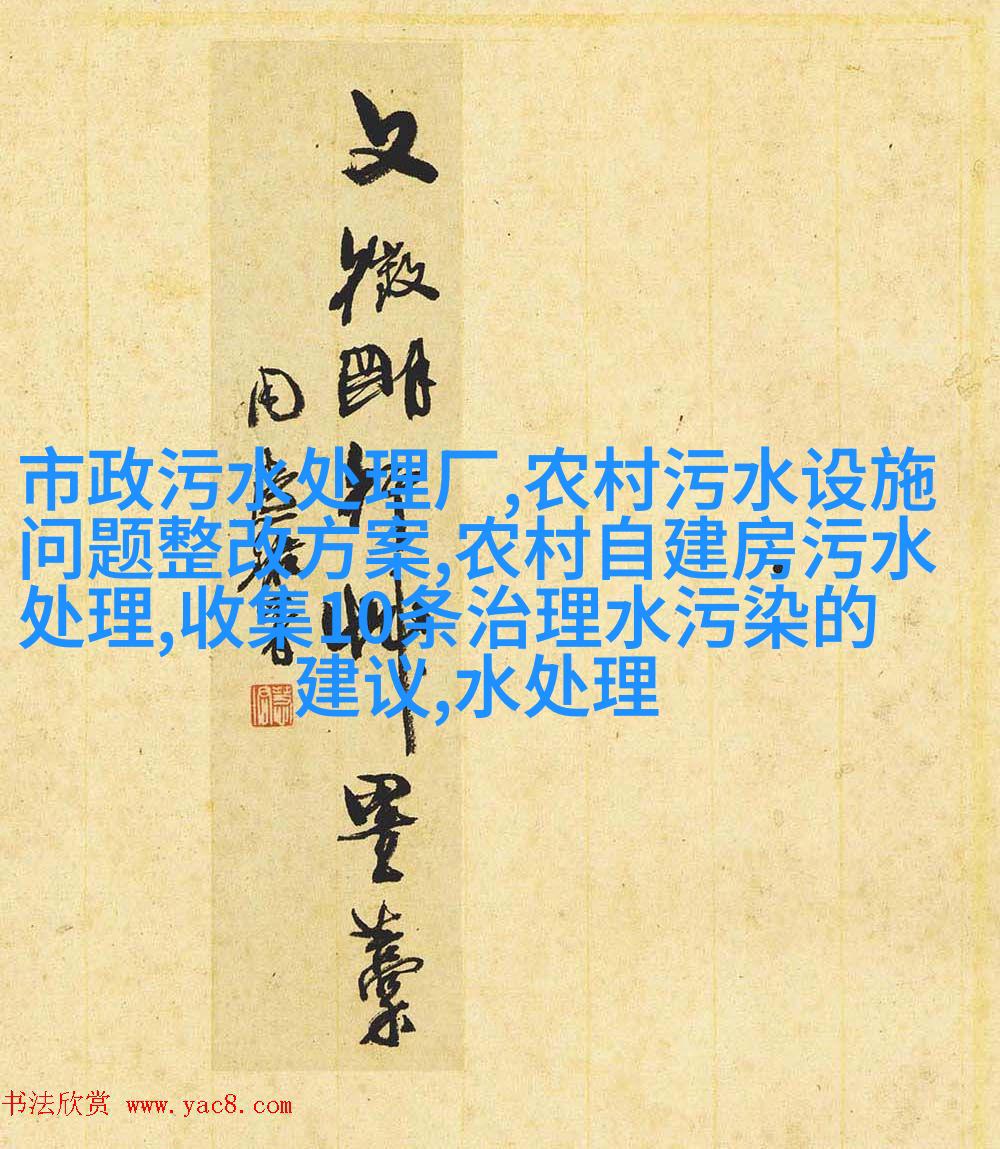 文徵明墨藁
市政污水处理厂,农村污水设施
问题整改方案,农村自建房污水
处理,收集10条治理水污染的
建议,水处理
书法欣赏 www.yac8.com